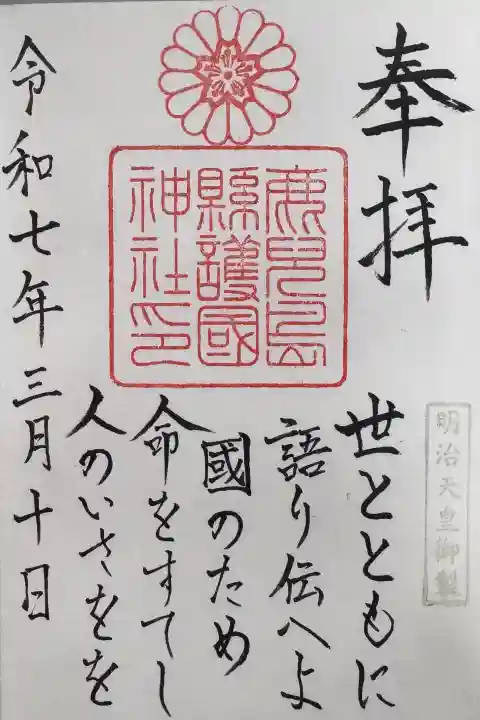 奉拝
明治天皇御製
鹿児島
縣護國
神社印
世とともに
語り伝へよ
國のため
命をすてし
人のいさをを
令和七年三月十日